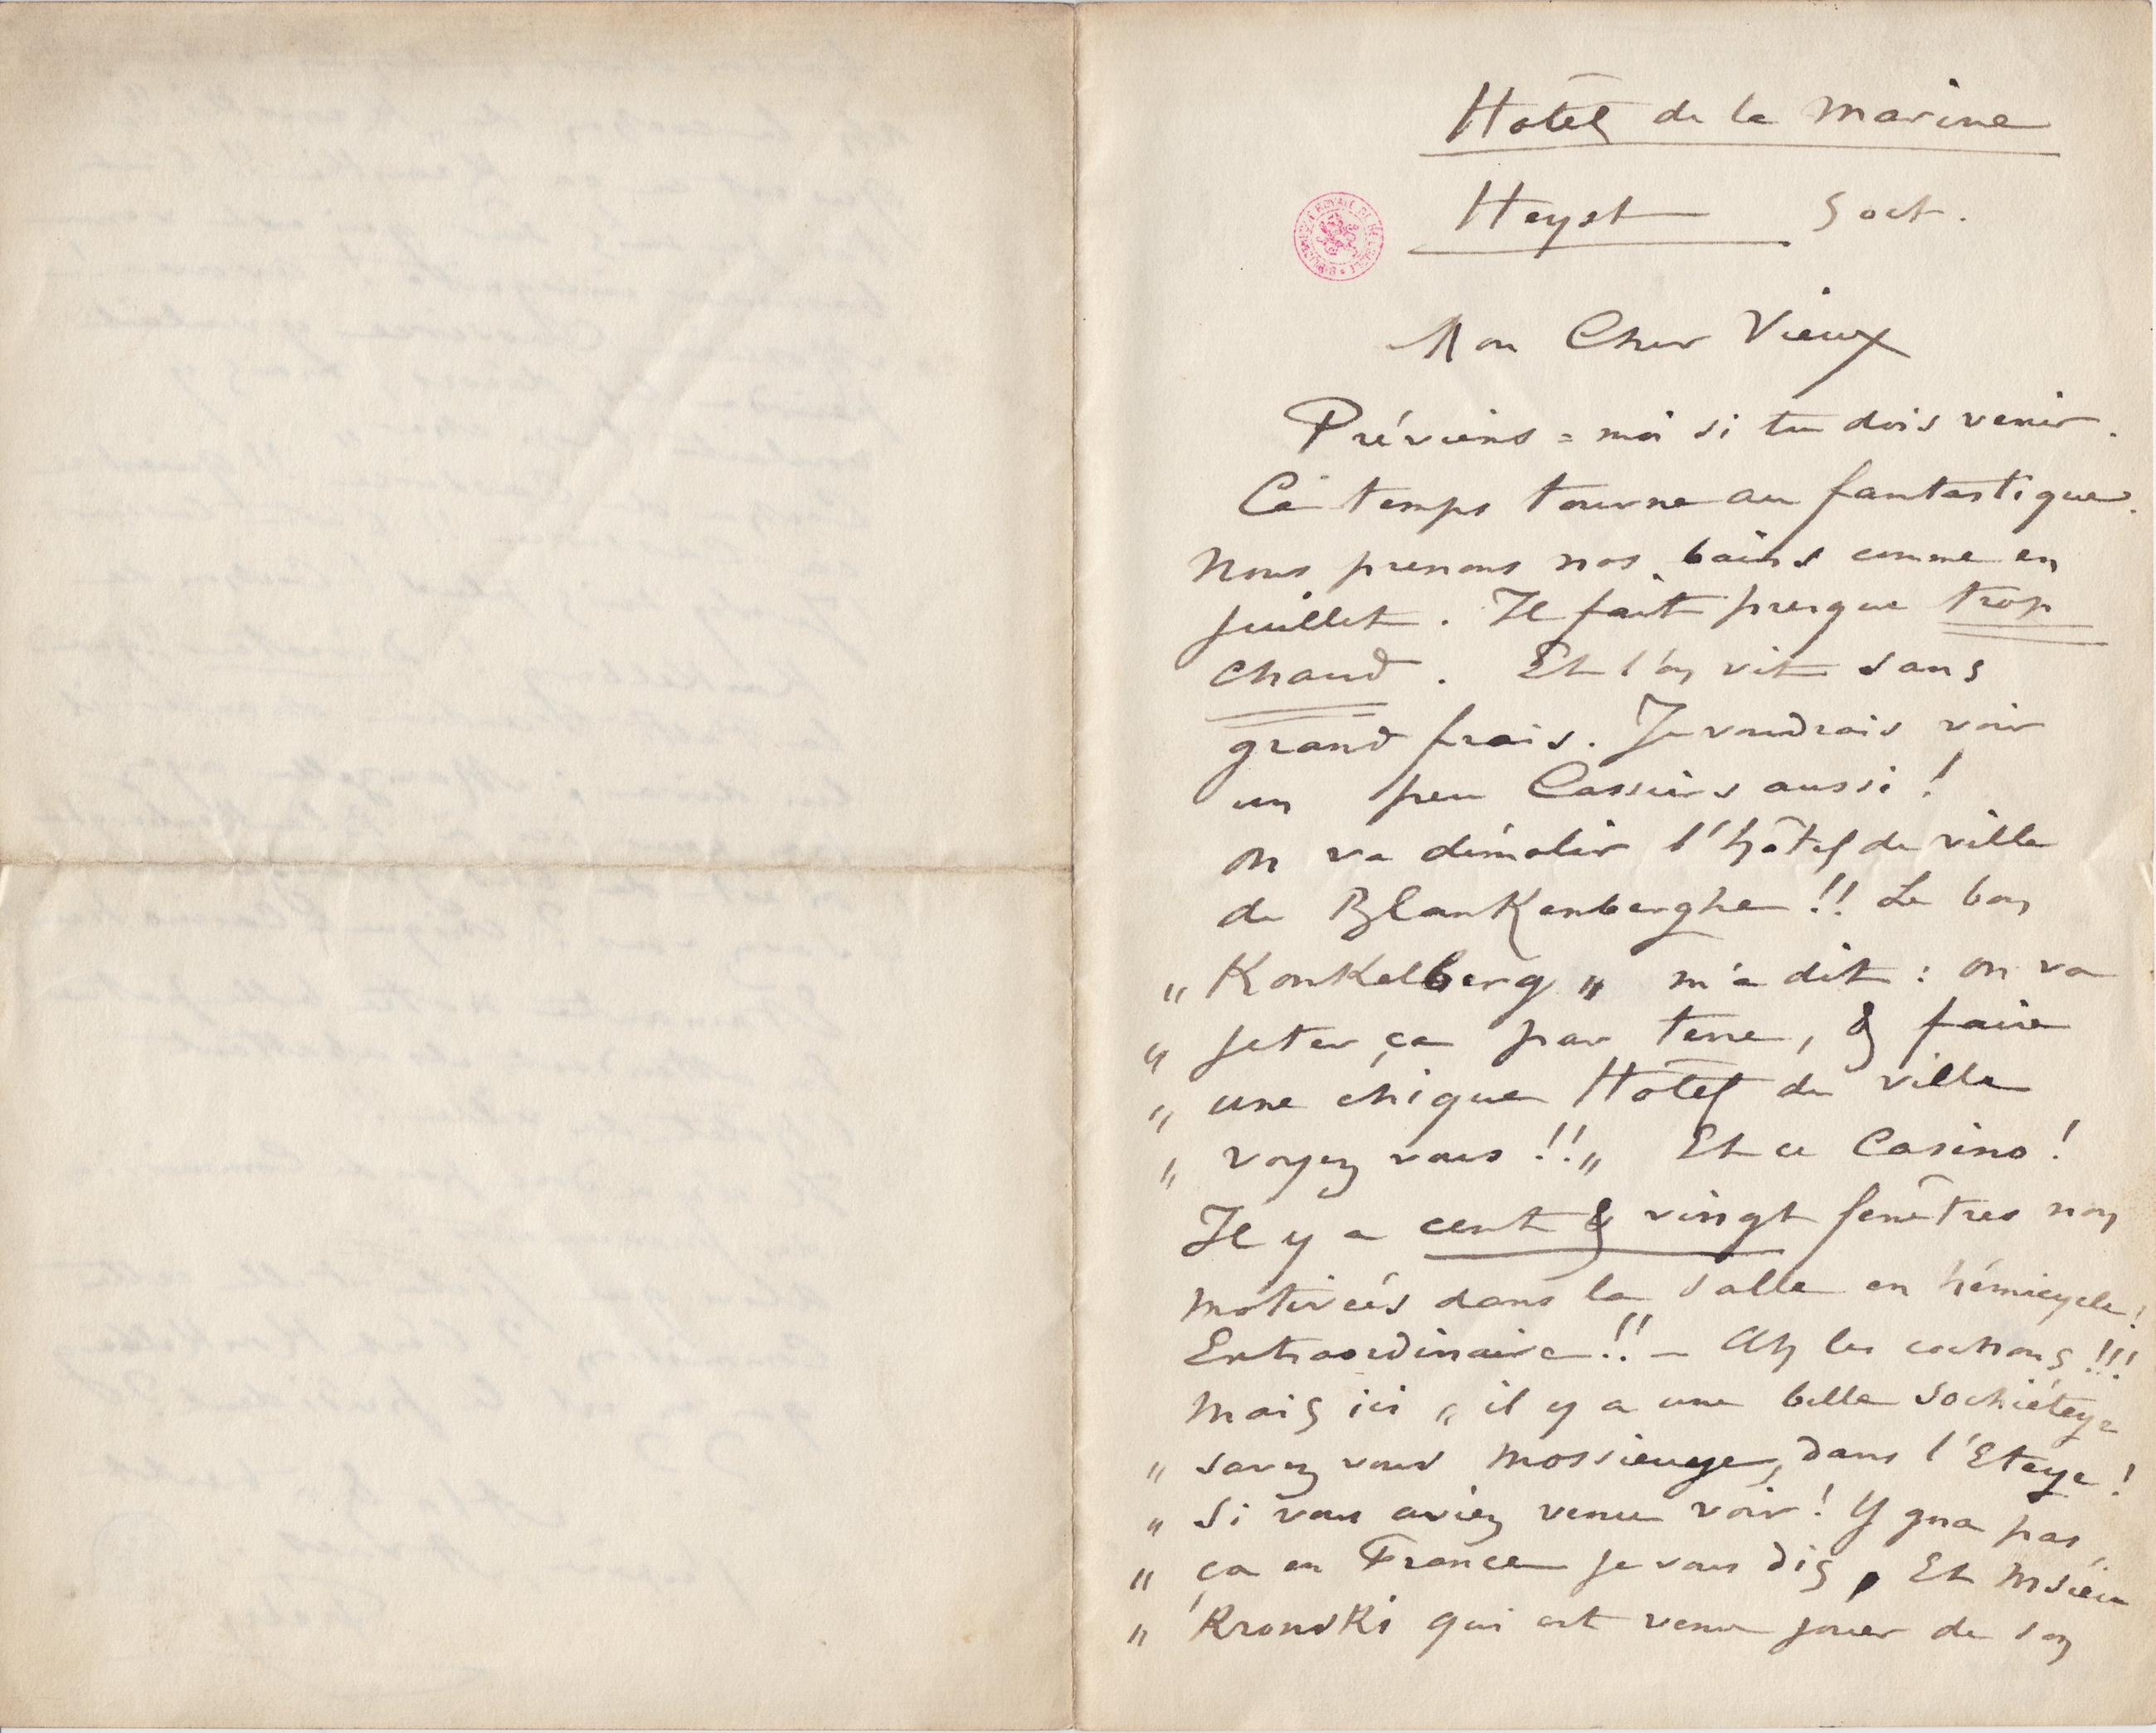 Hôtel de la Marine
Heyst 5 oct.
BIBLIOTHEQUE ROYALE DE BELGIQUE
Mon Cher Vieux
Préviens=moi si tu dois venir.
Ce temps tourne au fantastique.
Nous prenons nos bains comme en
juillet. Il fait presque trop
chaud. Et l'on vit sans
grand frais. Je voudrais voir
un peu Cassiers aussi!
on va démolir l'hôtel de ville
de BlanKenberghe!! Le bon
„ KonKelberg „ m'a dit : on va
„ jeter ça par terre, & faire
„ une chique Hôtel de ville
„ voyez vous!!„ Et ce Casino!
Il y a cent & vingt fenêtres non
motivées dans la salle en hémicycle!
Extraordinaire!! – Ah les cochons!!!
Mais ici „ il y a une belle sochiéteye
„ savez vous Mossieuye, dans l'Eteye!
„ Si vous aviez venu voir! Y gna pas
„ ça en France je vous dis, Et Msieu
„ KronsKi qui est venu jouer de son